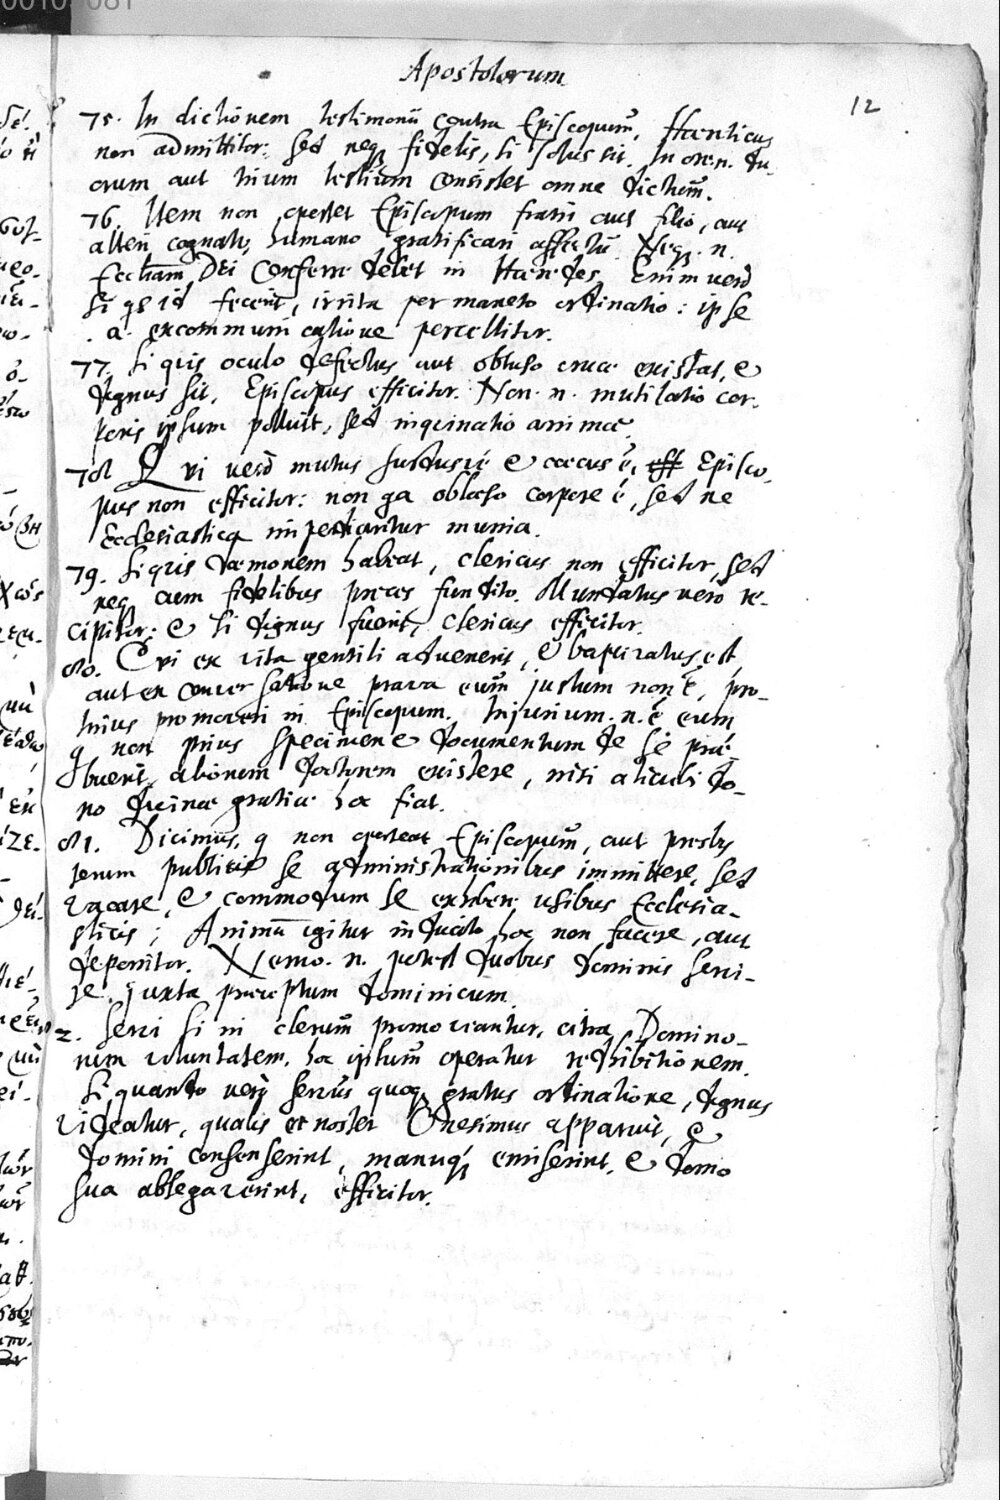 Apostolorum
12
75. In dictionem testimonii contra Episcopum, Haereticus
non admittitor: sed neq fidelis, si solus sit. In ore .n. du-
orum aut trium testium consistet omne dictum.
76. Item non oportet Episcopum fratri aut filio, aut
alteri cognato, humano gratificari affectu. Neq. n.
Ecctiam Dei Conferre debet in Haeredes, Enimvero
Si qs id fecerit, irrita permaneto ordinatio: ipse
.a. excommunicatione percellitor.
77. Si quis oculo defectus aut obtuso crure existat, &
dignus sit, Episcopus efficitor. Non .n. mutilatio cor-
poris ipsum polluit, sed inquinatio animae.
78 Qui vero mutus surdusve & caecus ē, Episco-
pus non efficitor: non qa oblaeso corpore ē, sed ne
Ecclesiastica impediantur munia.
79. Si quis daemonem habeat, clericus non efficitor, sed
neq cum fidelibus preces fundito. Mundatus vero re-
cipitor: & si dignus fuerit, clericus efficitor.
80. Qui ex vita gentili advenerit, & baptizatus est,
aut ex conversatione prava eum justum non ē, pro-
tinus promoveri in Episcopum. Injurium .n. ē eum
q non prius specimen & documentum de se prae-
buerit, aliorum doctorem existere, nisi alicubi do-
no divinae gratiae hoc fiat.
81. Dicimus, q non oporteat Episcopum, aut presby
terum publicis se administrationibus immittere, sed
vacare, & commodum se exhibere usibus Ecclesia-
sticis; Animum igitur inducito hoc non facere, aut
deponitor. Nemo .n. potest duobus dominis servi-
re. juxta praeceptum dominicum.
2. Servi si in clerum promoveantur, citra Domino-
rum voluntatem, hoc ipsum operatur redhibitionem.
Si quando vero servus quoq gratus ordinatione, dignus
videatur, qualis et noster Onesimus apparuit, &
domini consenserint, manuq emiserint, & domo
sua ablegaverint, efficitor.